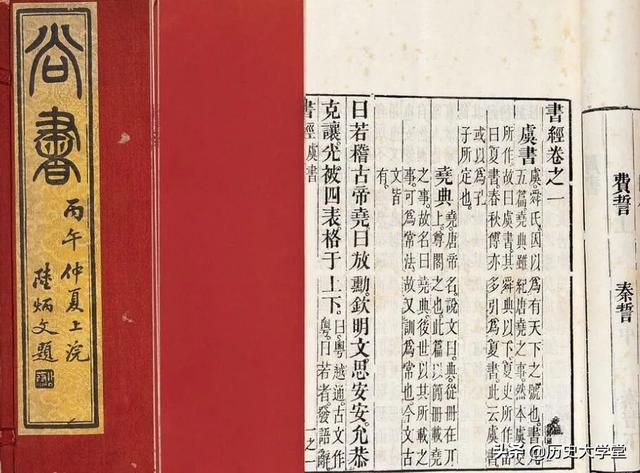 尚書
丙午仲夏上浣
陸炳文題
費誓
秦誓
書經卷之一
虞書 虞舜氏因以爲有天下之號也書凡
五篇堯典雖紀唐堯之事然本虞史
所作故曰虞書其舜典以下夏史所作當
曰夏書春秋傳亦多引爲夏書此云虞書
或以爲孔
子所定也
堯典 堯唐帝名說文曰典從冊在丌
上尊閣之也此篇以簡冊載堯
之事故名曰堯典後世以其所載之
事可爲常法故又訓爲常也今文古
文皆
有
曰若稽古帝堯曰放勳欽明文思安安允恭
克讓光被四表格于上下 曰粵越通古文作
粵曰若者發語辭
書經虞書
一之一
头条 @历史大学堂